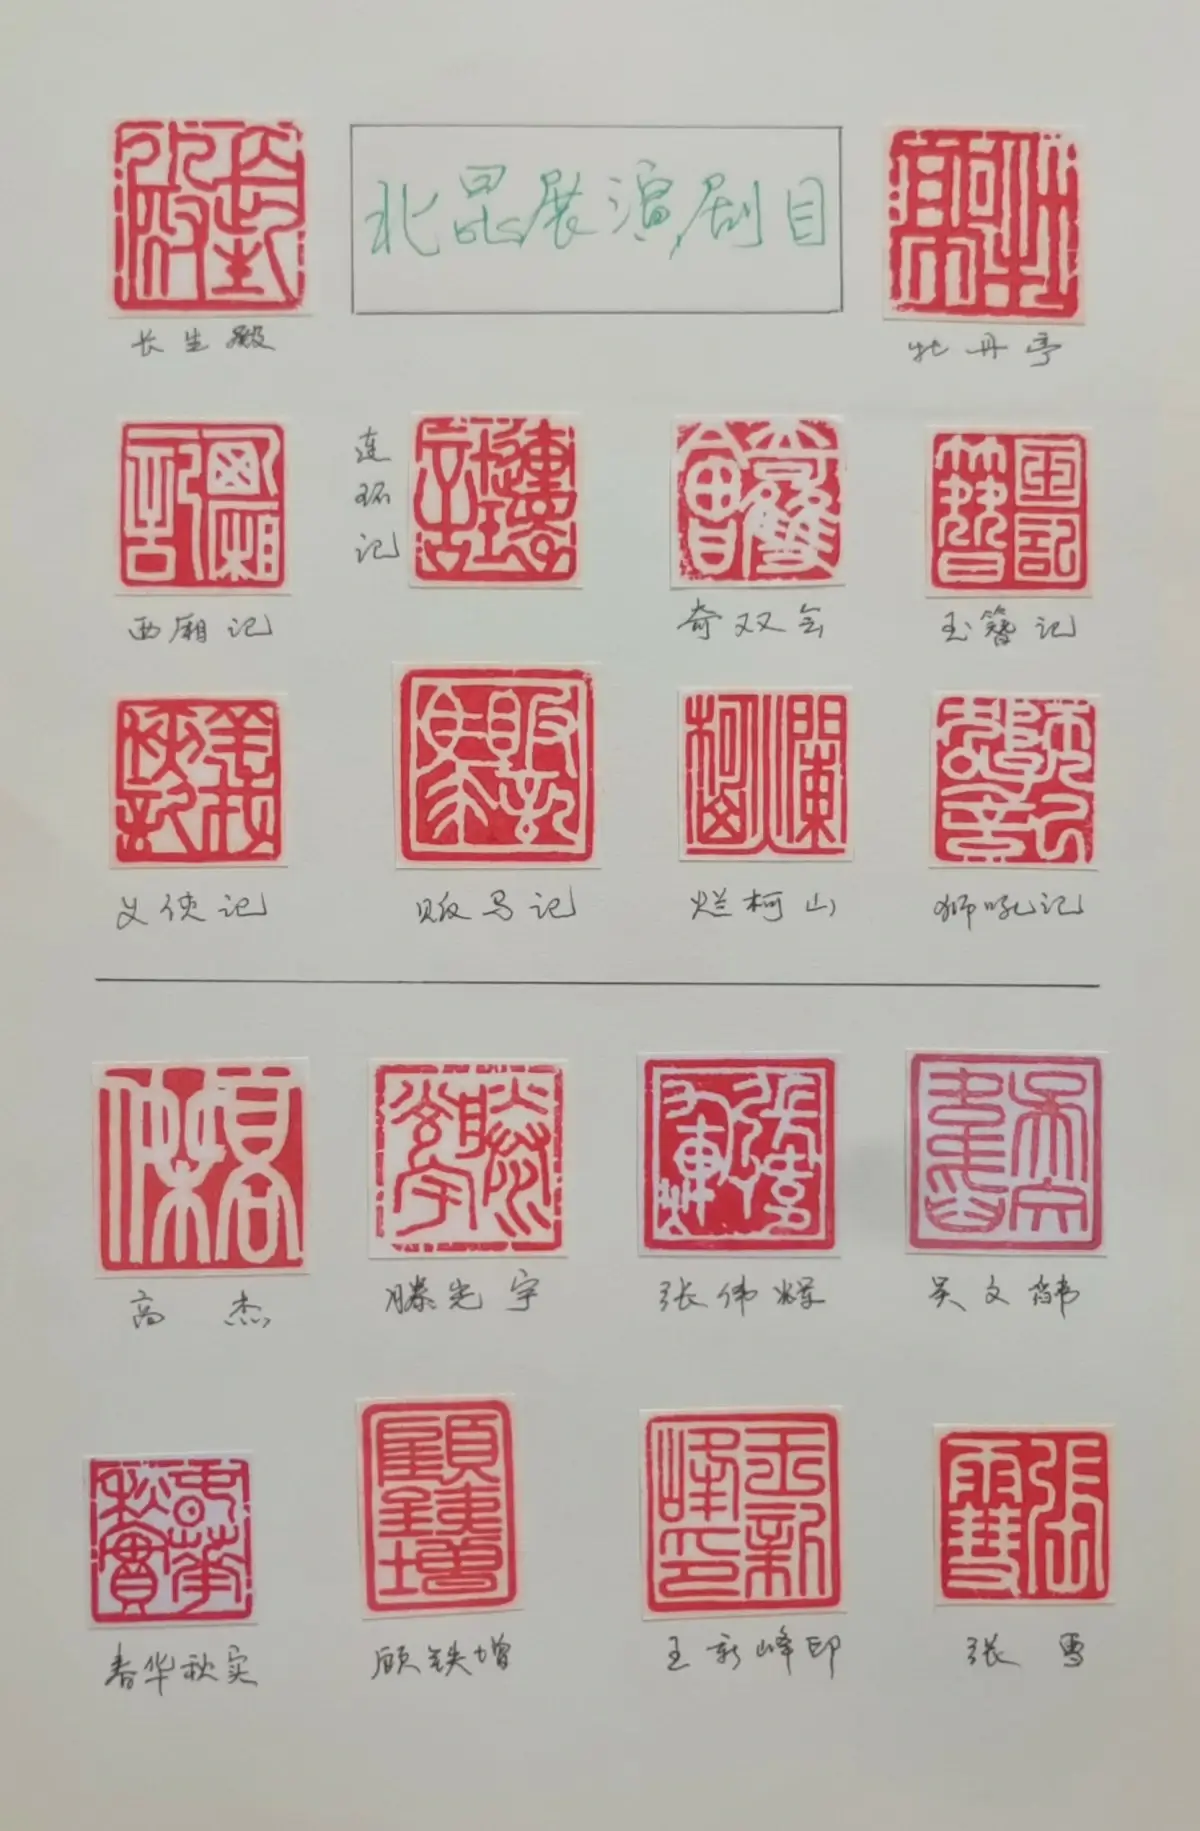 北昆展演剧目
长生殿
牡丹亭
西厢记
连环记
奇双会
玉簪记
义侠记
贩马记
烂柯山
狮吼记
高杰
滕光宇
张伟辉
吴文
春华秋实
顾铁增
王新峰印
张雪